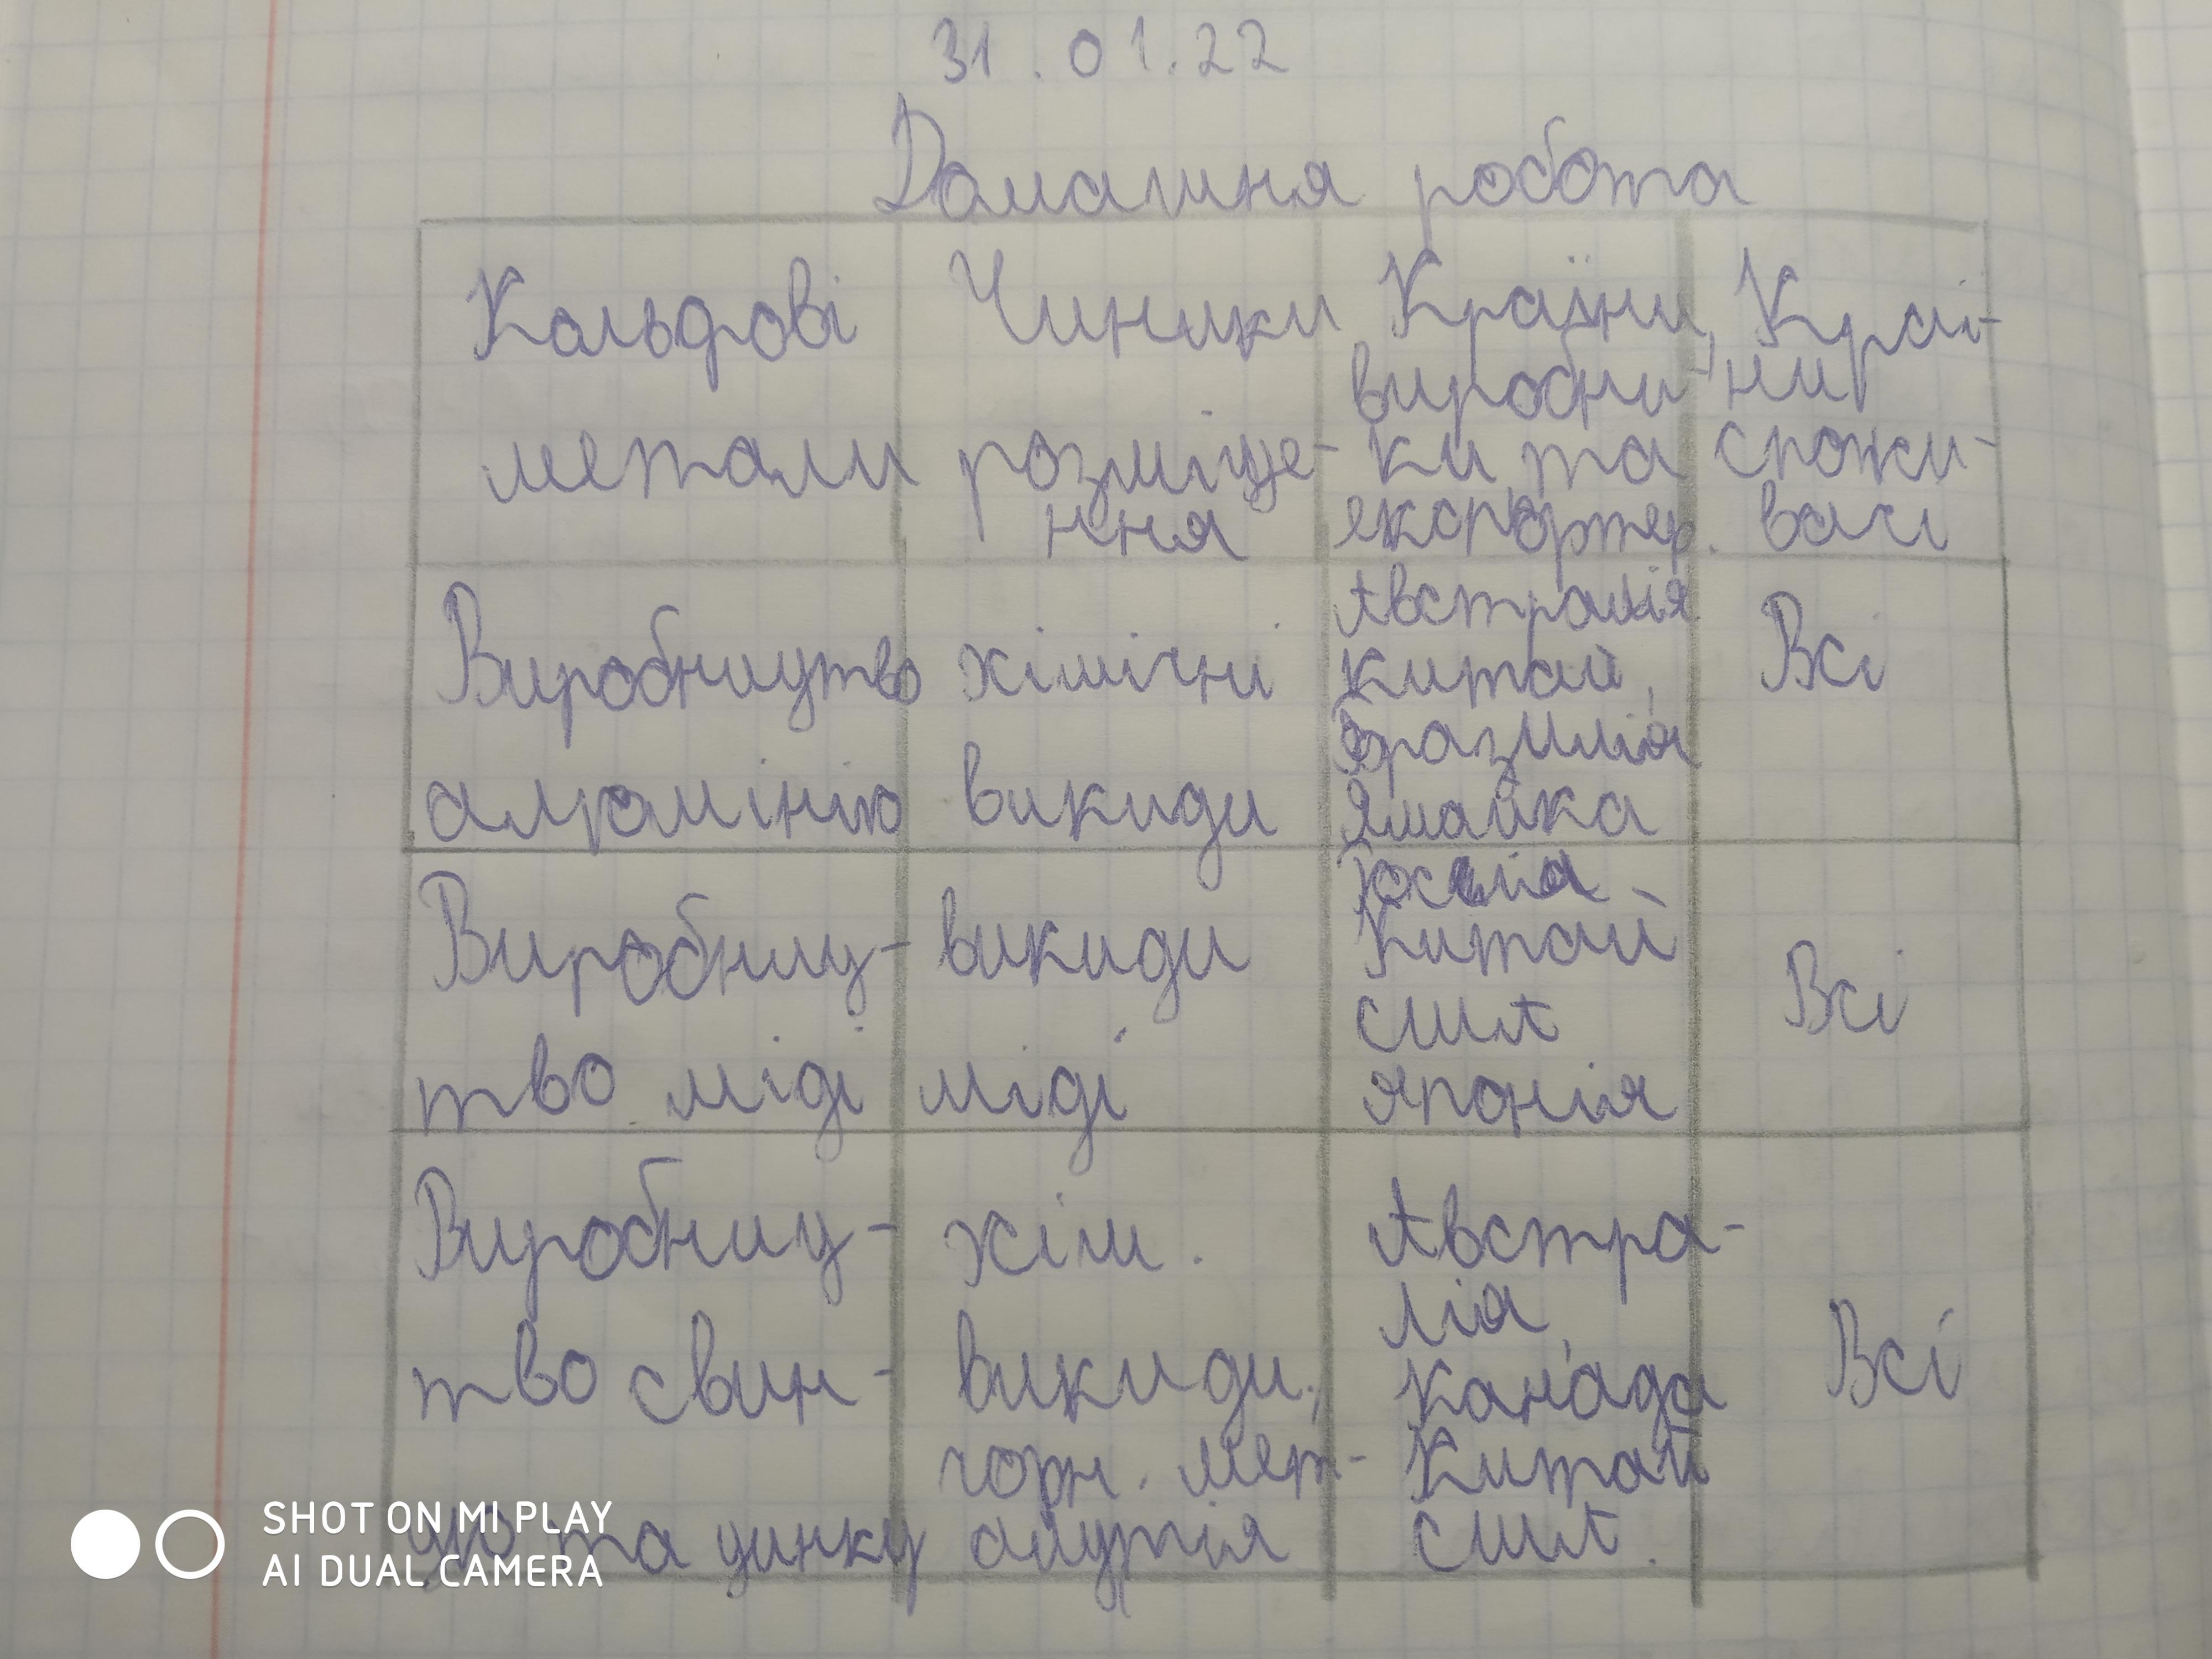 31.01.22
Домашня робота
Кольорові
метали
Чинники
розміще-
ння
Країни
виробни-
ки та
експортер.
Краї-
ни
спожи-
вачі
Виробництво
алюмінію
хімічні
викиди
Австралія
Китай,
Бразилія
Ямайка
Всі
Виробниц-
тво міді
викиди
міді
Росія
Китай
США
Японія
Всі
Виробниц-
тво свин-
цю та цинку
хім.
викиди,
чорн. мет-
алургія
Австра-
лія,
Канада
Китай
США.
Всі
SHOT ON MI PLAY
AI DUAL CAMERA